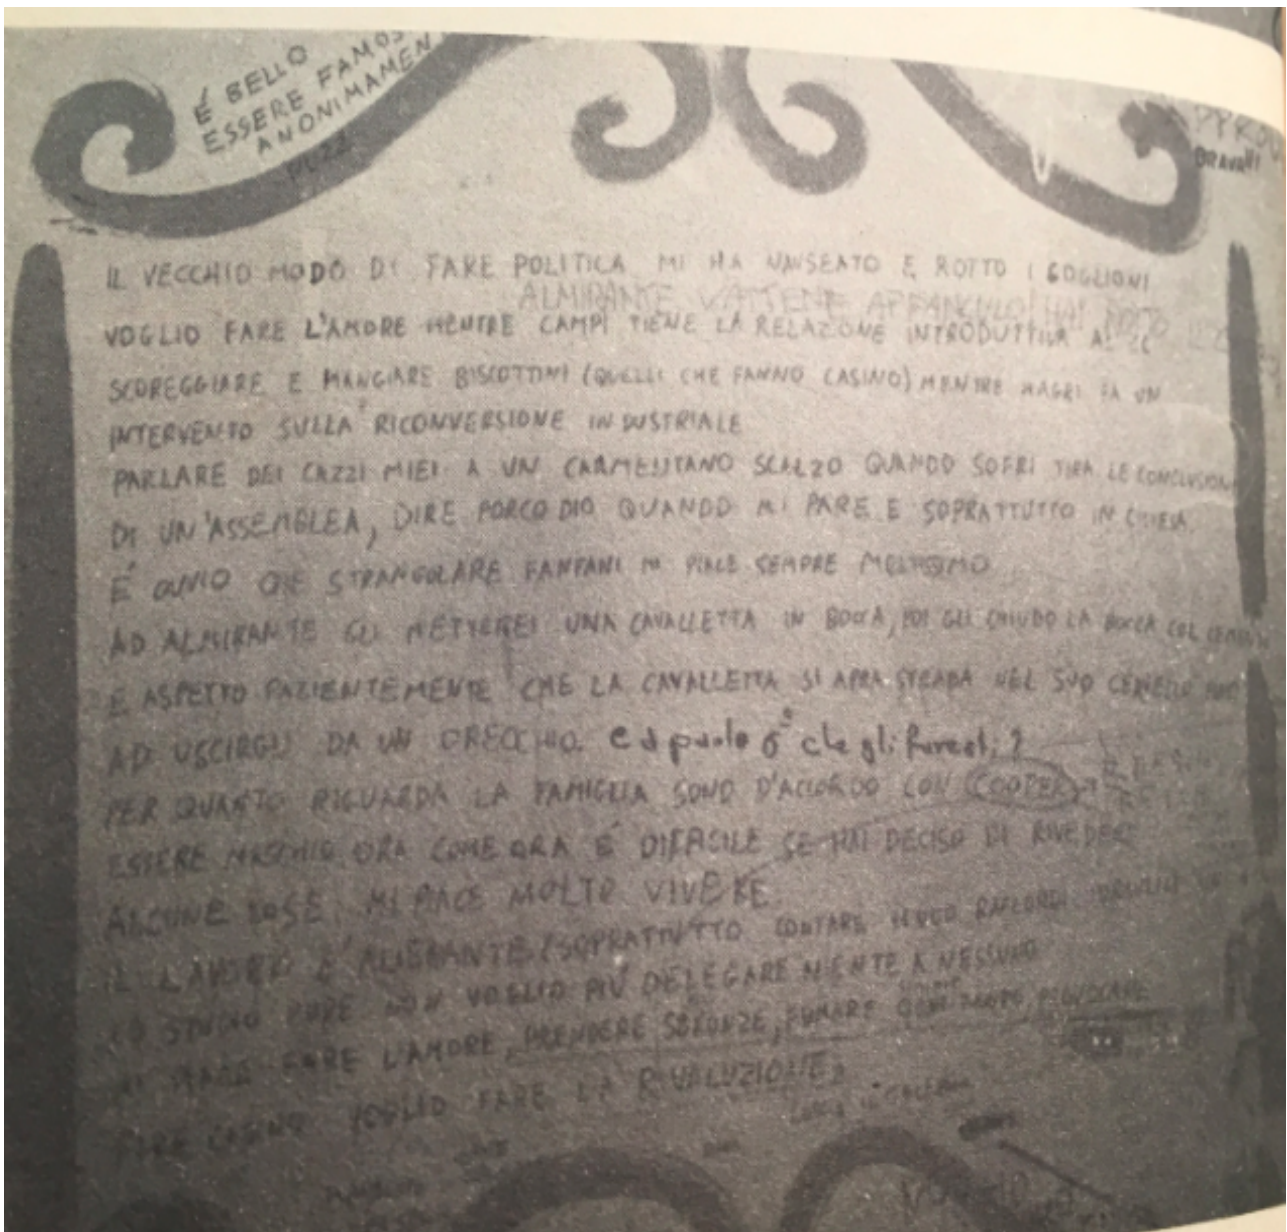 É BELLO
ESSERE FAMOS
ANONIMAMEN
BRAVO!!
IL VECCHIO MODO DI FARE POLITICA MI HA NAUSEATO E ROTTO I COGLIONI
ALMIRANTE VATTENE AFFANCULO! HAI ROTTO
VOGLIO FARE L'AMORE MENTRE CAMPI TIENE LA RELAZIONE INTRODUTTIVA AL CC
SCOREGGIARE E MANGIARE BISCOTTINI (QUELLI CHE FANNO CASINO) MENTRE MAGRI FA UN
INTERVENTO SULLA RICONVERSIONE INDUSTRIALE
PARLARE DEI CAZZI MIEI A UN CARMELITANO SCALZO QUANDO SOFRI TIRA LE CONCLUSION
DI UN'ASSEMBLEA, DIRE PORCO DIO QUANDO MI PARE E SOPRATTUTTO IN CHIESA.
É OVVIO CHE STRANGOLARE FANFANI MI PIACE SEMPRE MOLTISSIMO
AD ALMIRANTE GLI METTEREI UNA CAVALLETTA IN BOCCA, POI GLI CHIUDO LA BOCCA COL CEMENTO
E ASPETTO PAZIENTEMENTE CHE LA CAVALLETTA SI APRA STRADA NEL SUO CERVELLO FINO
AD USCIRGLI DA UN ORECCHIO. e a paolo 6° che gli faresti?
PER QUANTO RIGUARDA LA FAMIGLIA SONO D'ACCORDO CON COOPER
ESSERE MASCHIO ORA COME ORA É DIFFICILE SE HAI DECISO DI RIVEDERE
ALCUNE COSE. MI PIACE MOLTO VIVERE.
IL LAVORO É ALIENANTE (SOPRATTUTTO CONTARE RACCORDI
LO STUDIO PURE NON VOGLIO PIÚ DELEGARE NIENTE A NESSUNO
MI PIACE FARE L'AMORE, PRENDERE SBRONZE, FUMARE OGNI TANTO, PROVOCARE
FARE CASINO VOGLIO FARE LA RIVALUZIONE